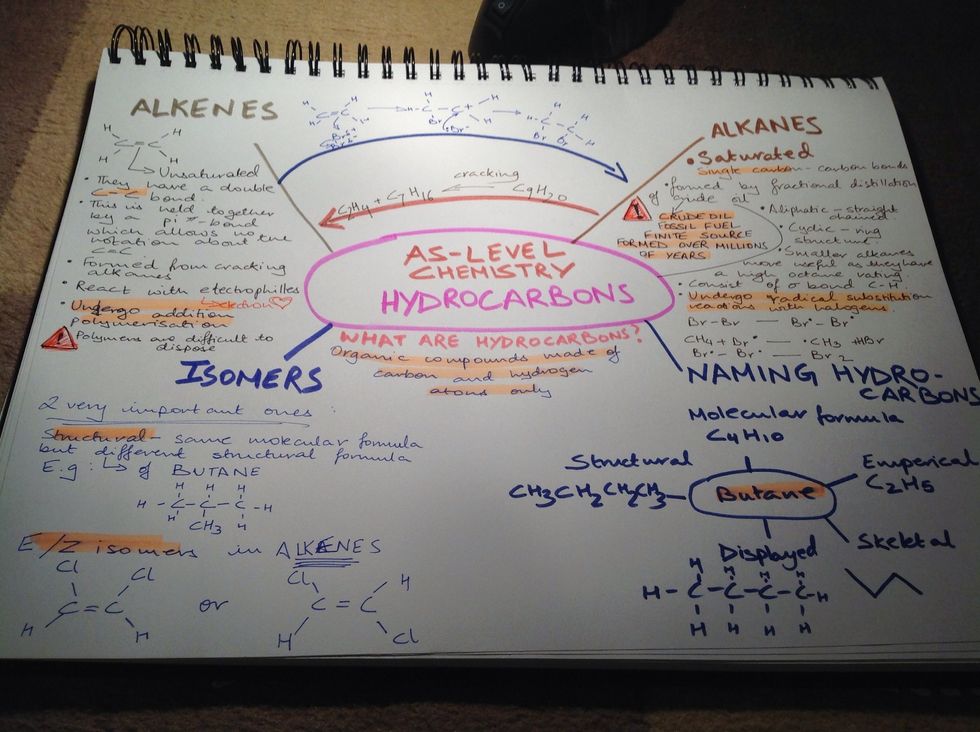 ALKENES
H H
C=C
H H
Unsaturated
• They have a double
C=C bond.
• This is held together
by a pi π-bond
which allows no
rotation about the
C=C
• Formed from cracking
alkanes
• React with electrophilles
• Undergo addition
polymerisation
! Polymers are difficult to
dispose
cracking
C2H4 + C7H16 C9H20
AS-LEVEL
CHEMISTRY
HYDROCARBONS
WHAT ARE HYDROCARBONS?
Organic compounds made of
carbon and hydrogen
atoms only
ALKANES
• Saturated
Single carbon-carbon bonds
• formed by fractional distillation
of crude oil
! CRUDE OIL
FOSSIL FUEL
FINITE SOURCE
FORMED OVER MILLIONS
OF YEARS
• Aliphatic - straight
chained
• Cyclic - ring
structure
• Smaller alkanes
more useful as they have
a high octane rating
• Consist of σ bond C-H
• Undergo radical substitution
reactions with halogens.
Br-Br — Br• Br•
CH4 + Br• — •CH3 + HBr
Br• Br• — Br2
ISOMERS
2 very important ones:
Structural - same molecular formula
but different structural formula
E.g: of BUTANE
H H H
H - C - C - C - H
H CH3 H
E/Z isomers in ALKENES
Cl Cl
C=C
H H
or
Cl H
C=C
H Cl
NAMING HYDRO-
CARBONS
Molecular formula
C4H10
Structural
CH3CH2CH2CH3
Butane
Emperical
C2H5
Displayed
H H H H
H-C-C-C-C-H
H H H H
Skeletal